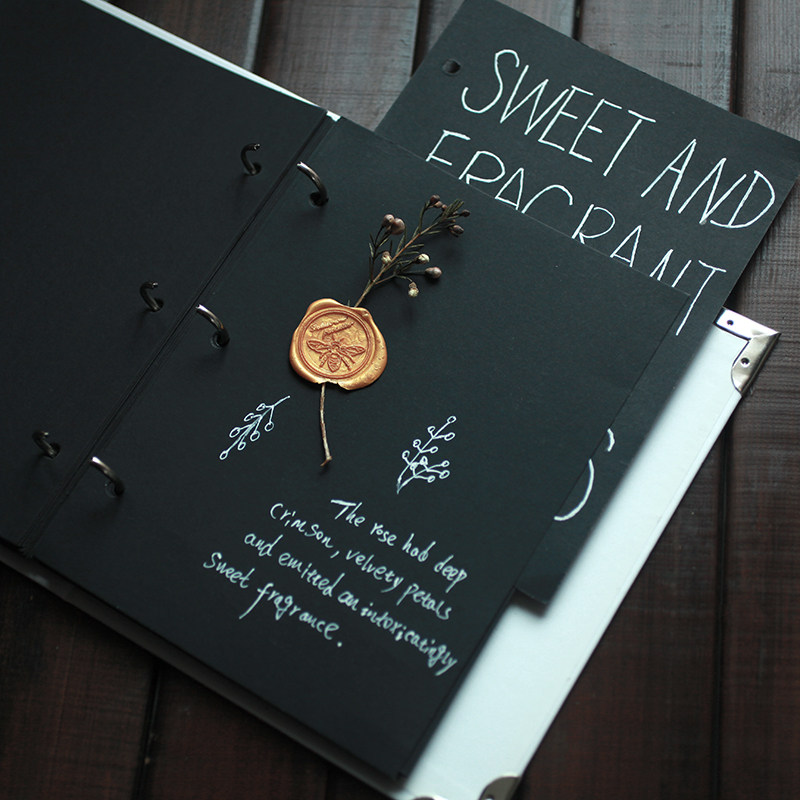 SWEET AND
FRAGRANT
S
The rose had deep
crimson, velvety petals
and emitted an intoxicatingly
sweet fragrance.